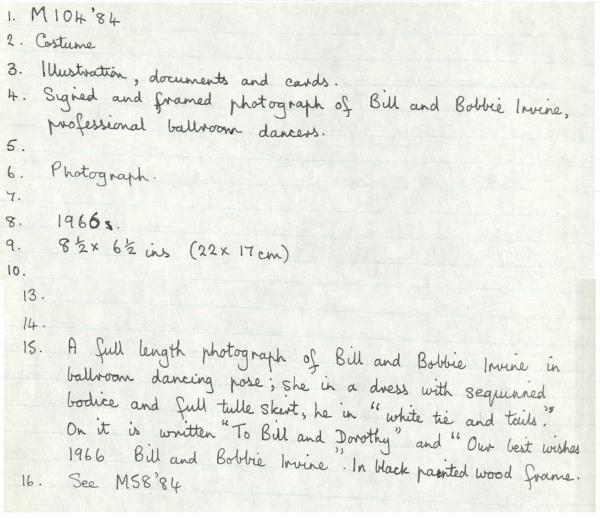 1. M104'84
2. Costume
3. Illustration, documents and cards.
4. Signed and framed photograph of Bill and Bobbie Irvine,
professional ballroom dancers.
5.
6. Photograph.
7.
8. 1966
9. 8½ x 6½ ins (22 x 17 cm)
10.
13.
14.
15. A full length photograph of Bill and Bobbie Irvine in
ballroom dancing pose; she in a dress with sequinned
bodice and full tulle skirt, he in "white tie and tails."
On it is written "To Bill and Dorothy" and "Our best wishes
1966 Bill and Bobbie Irvine". In black painted wood frame.
16. See M58'84